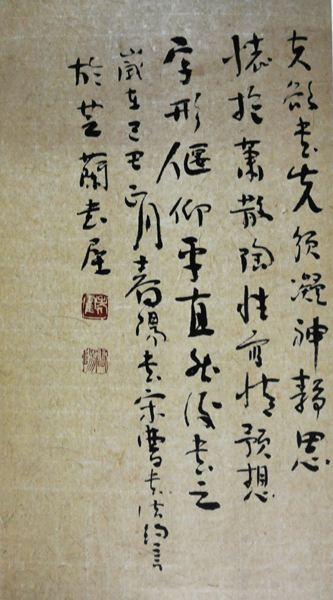 夫欲書先須凝神靜思
懷抱蕭散陶性寫情預想
字形偃仰平直然後書之
歲在己巳正月陽書宋曹書法約言
於芝蘭書屋